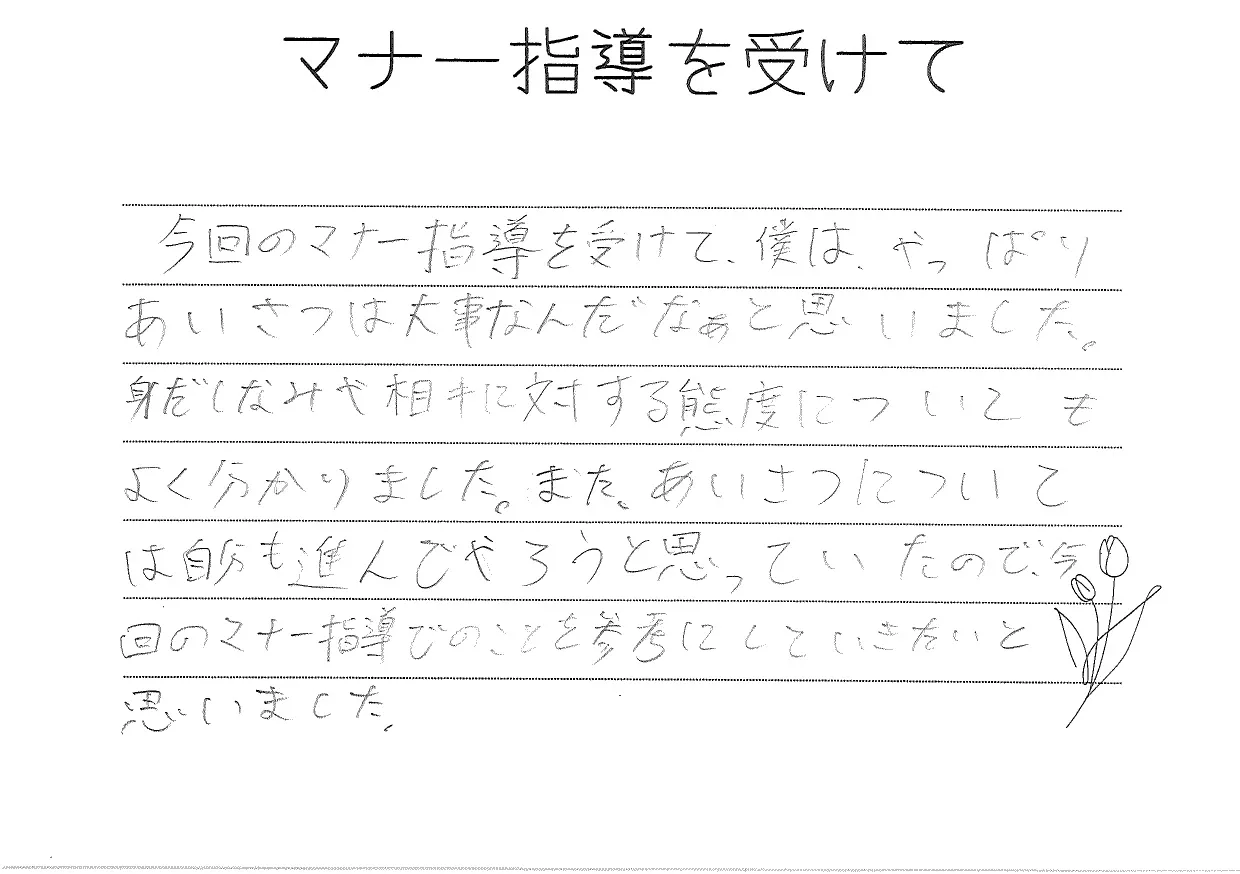 マナー指導を受けて
今回のマナー指導を受けて、僕は、やっぱり
あいさつは大事なんだなぁと思いました。
身だしなみや相手に対する態度についても
よく分かりました。また、あいさつについて
は自分も進んでやろうと思っていたので、今
回のマナー指導でのことを参考にしていきたいと
思いました。